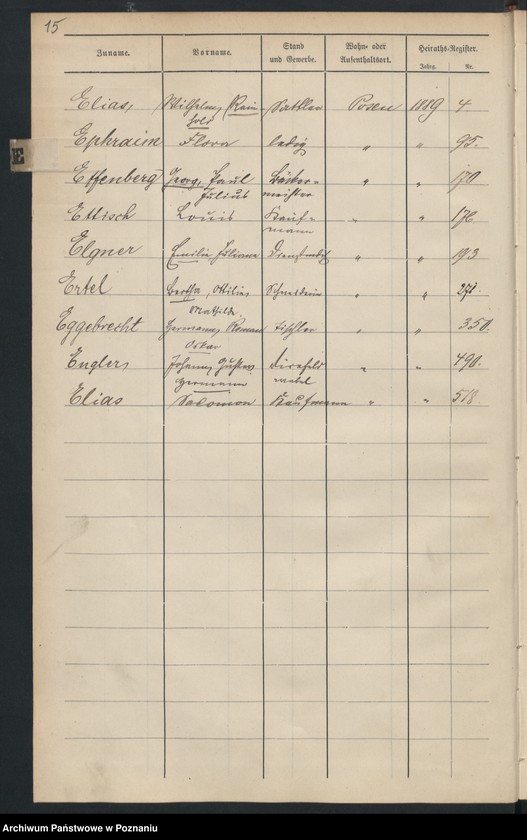 15
Zuname. Vorname. Stand und Gewerbe. Wohn- oder Aufenthaltsort. Heiraths-Register.
Jahrg. Nr.
Elias, Wilhelm, Rein- Sattler Posen 1889 4.
hold
Ephraim Flora ledig " " 95.
E
Effenberg Georg, Paul Bäcker- " " 170
Julius meister
Ettisch Louis Kauf- " " 176
mann
Elgner Emilie, Juliane Dienstmdch " " 193
Ertel Bertha, Ottilie, Schneiderin " " 271.
Mathilde.
Eggebrecht Hermann, Roman Tischler " " 350.
Oskar
Englers Johann, Gustav " " 490.
Hermann webel
Elias Salomon Kaufmann " " 518.
Archiwum Państwowe w Poznaniu